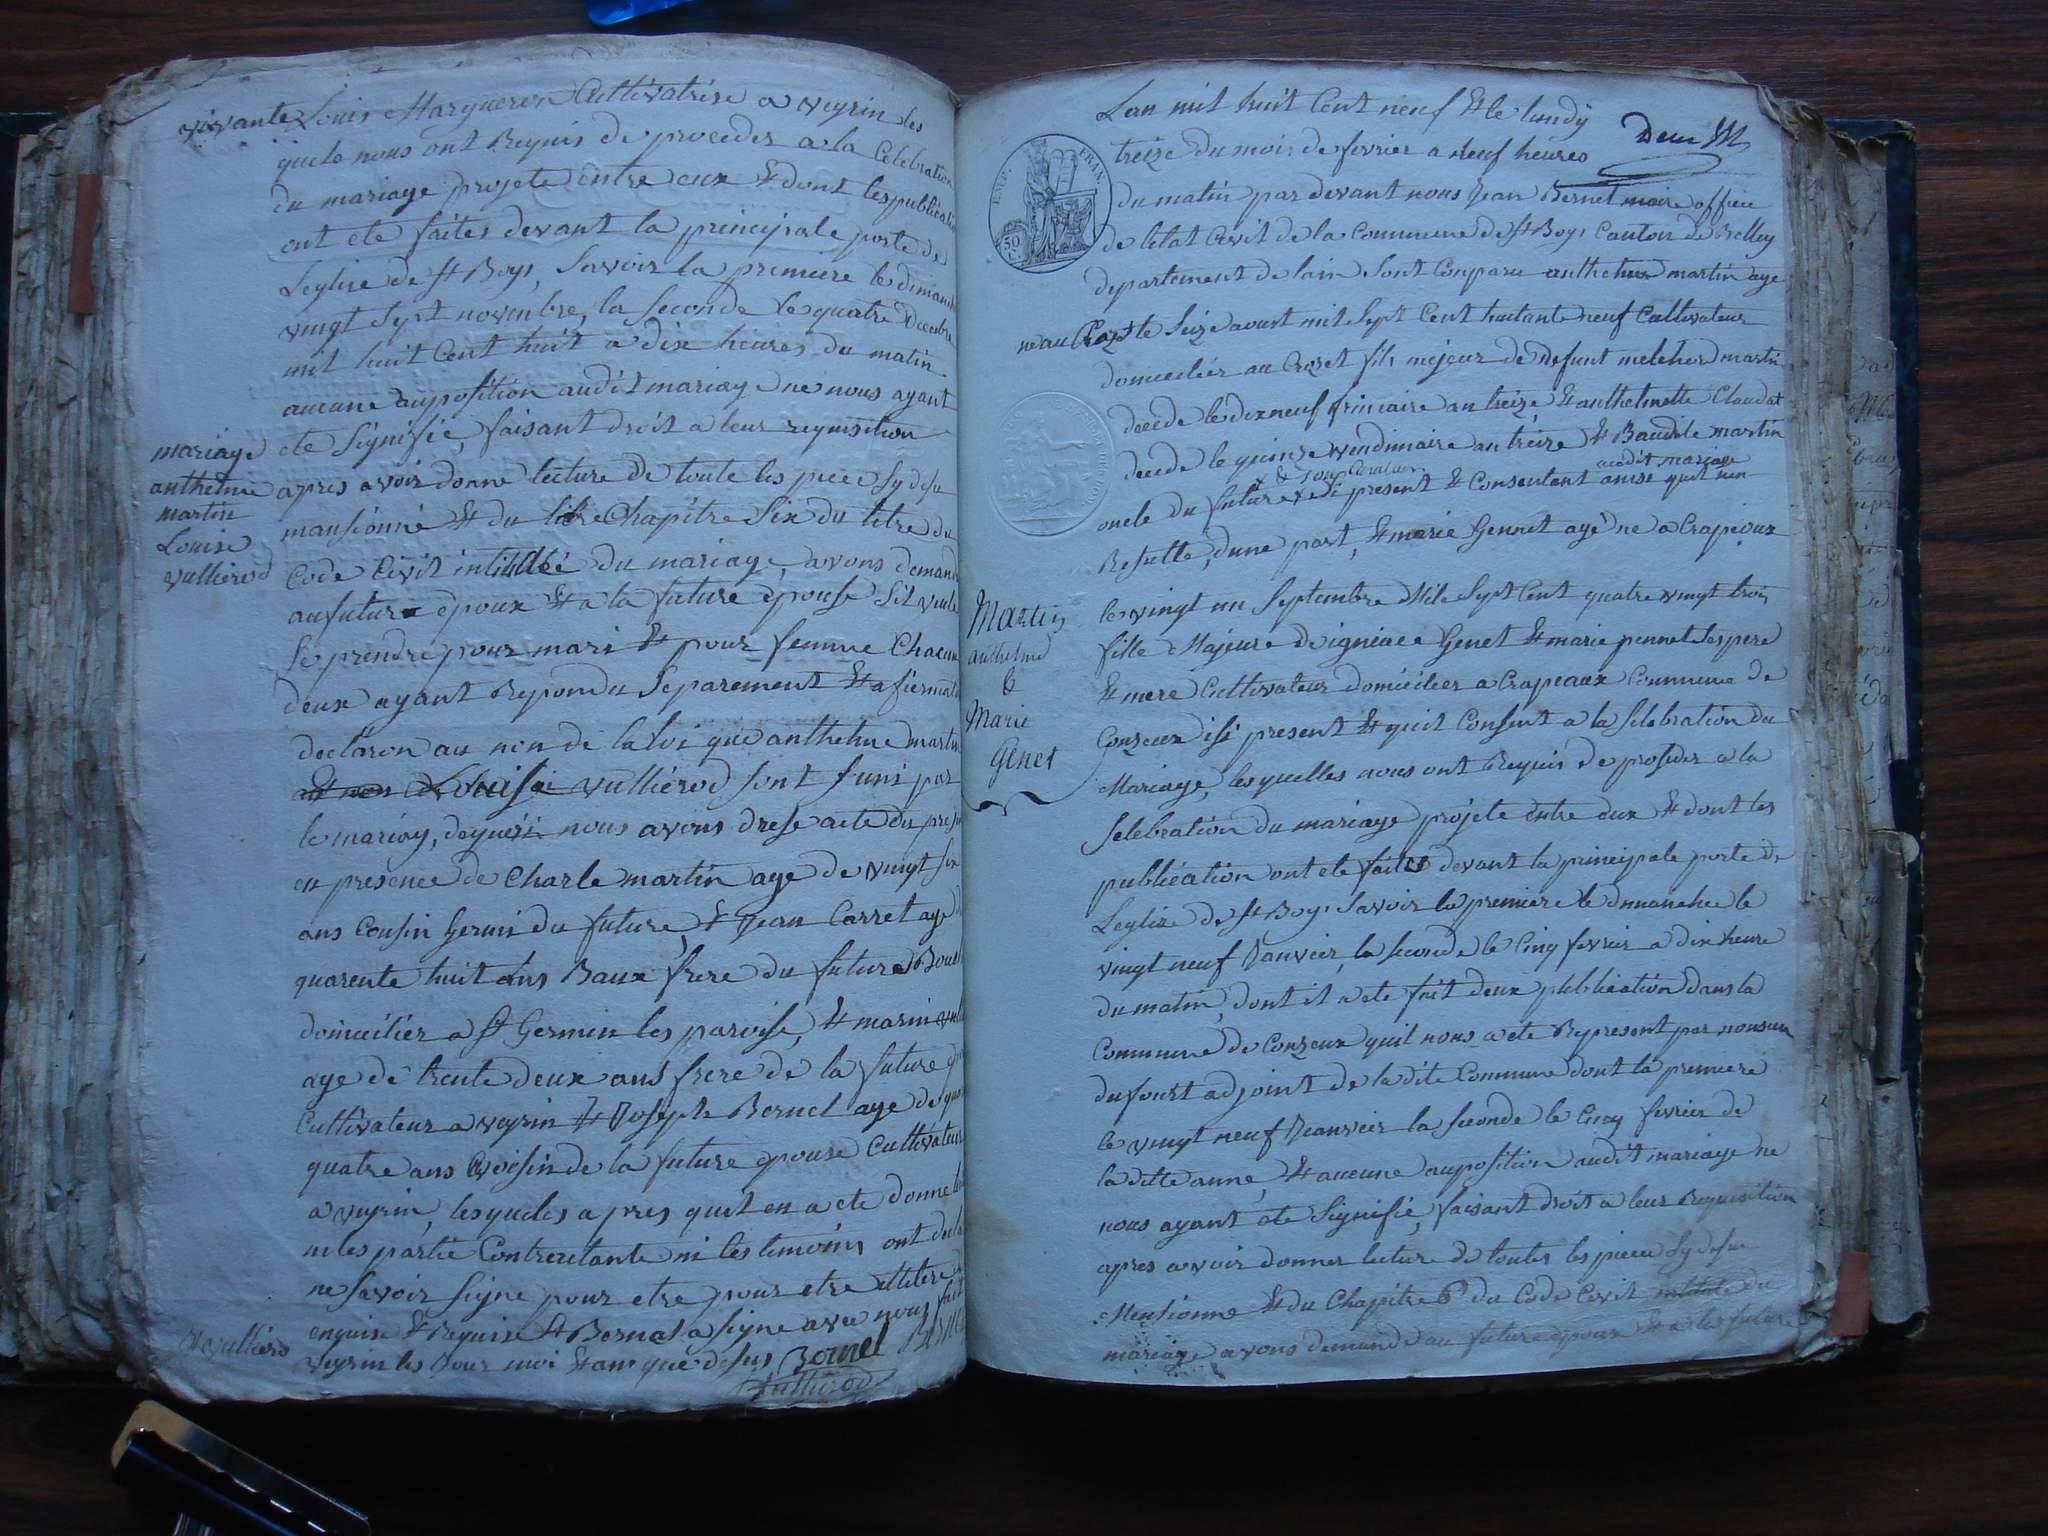 vivante Louis Margueron Cultivatrise a veyrin les
quele nous ont Requis de proceder a la Celebration
du mariage projete entre eux & dont les publication
ont ete faites devant la principale porte de
Leglise de St Boys, Savoir la premiere le dimanche
vingt Sept novembre, la Seconde le quatre Decembre
mil huit Cent huit a dix heures du matin
aucune auposition audit mariage ne nous ayant
ete Signifie, faisant droit a leur requisition
apres avoir donne lecture de toute les piece Sy desu
mansionné & du titre Chapitre Six du titre du
Code Civil intitulé du mariage, avons demandé
au future epoux & a la future epouse Sil veule
Se prendre pour mari & pour femme Chacun
deux ayant Repondu Separement & afiermati
declaron au non de la loi que anthelme martin
Louise vulliérod sont funi par
le mariag, dequesi nous avons drese acte du
en presence de Charle martin age de vingt six
ans Cousin Germi du future, & Jean Carret age
quarente huit ans Baux frere du future
domicilier a St Germin les paroise, & marin
age de trente deux ans frere de la future
Cultivateur a veyrin & Joseph Bernel age de
quatre ans voisin de la future epouse Cultivateur
a veyrin, lesqueles apres quil en a ete donne
ni les partie Contractante ni les temoins ont
ne Savoir Signe pour etre pour etre
enquise & Requise & Bernel a signe avec nous fait
veyrin les Jour moi & an que desus Bernel
mariage
anthelme
martin
Louise
vulliérod
vulliérod
Lan mil huit Cent neuf & le lundy
treize du mois de fevrier a neuf heures
du matin par devant nous Jean Bernet maire officie
de letat Civil de la Commune de St Boys Canton de Belley
departement de lain Sont Comparu anthelme martin age
ne au Crozet le Seize avust mil Sept Cent huitante neuf Cultivateur
domicilier au Crozet fils mejeur de defunt melchior martin
decede le dix neuf frimaire an treize, & anthelmette Claudat
decede le quinze vendimiaire an treize & Baudile martin
audit mariage
oncle du future present & Consentent quil non
Resulte, dune part, & marie Gennet age ne a Crapeoux
le vingt un Septembre Mile Sept Cent quatre vingt trois
fille Majeure de igniace Genet & marie pennet les pere
& mere Cultivateur domicilier a Crapeaux Commune de
Conzeux isi present & quil Consent a la Selebration du
Mariage, lesquelles nous ont Requis de proseder a la
Selebration du mariage projete entre eux & dont les
publication ont ete faites devant la principale porte de
Leglise de St Boys Savoir la premiere le dimanche le
vingt neuf Janvier, la seconde le Cinq fevrier a dix heure
du matin, dont il a ete fait deux publication dans la
Commune de Conzeux quil nous a ete Represent par
dufourt adjoint de la dite Commune dont la premiere
le vingt neuf Janvier la seconde le Cinq fevrier de
la ditte anne, & aucune auposition audit mariage ne
nous ayant ete Signifie, faisant droit a leur Requisition
apres avoir donner lecture de toutes les piece Sy desue
Mensionne & du Chapitre 6 du Code Civil intitule du
mariage avons demande au future epoux & a la future
Martin
anthelme
&
Marie
Genet
EMP. FRAN.
50